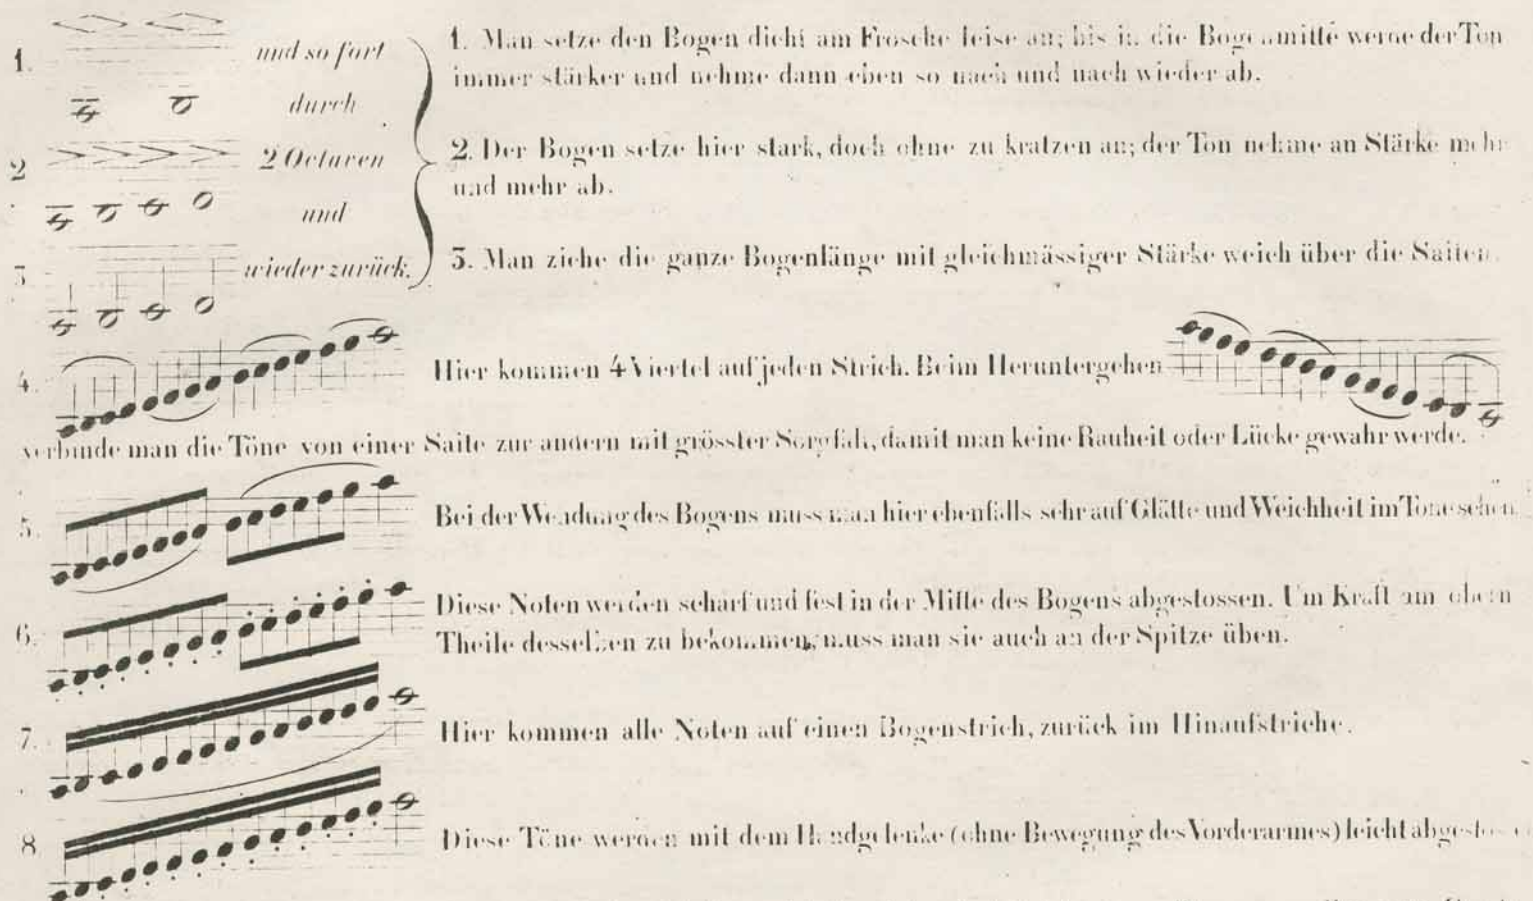 1. und so fort
durch
2 2 Octaven
und
3 wieder zurück.
1. Man setze den Bogen dicht am Frosche leise an; bis in die Bogenmitte werde der Ton
immer stärker und nehme dann eben so nach und nach wieder ab.
2. Der Bogen setze hier stark, doch ohne zu kratzen an; der Ton nehme an Stärke mehr
und mehr ab.
3. Man ziehe die ganze Bogenlänge mit gleichmässiger Stärke weich über die Saiten.
4. Hier kommen 4 Viertel auf jeden Strich. Beim Heruntergehen
verbinde man die Töne von einer Saite zur andern mit grösster Sorgfalt, damit man keine Rauheit oder Lücke gewahr werde.
5. Bei der Wendung des Bogens muss man hier ebenfalls sehr auf Glätte und Weichheit im Tone sehen.
6. Diese Noten werden scharf und fest in der Mitte des Bogens abgestossen. Um Kraft am obern
Theile desselben zu bekommen, muss man sie auch an der Spitze üben.
7. Hier kommen alle Noten auf einen Bogenstrich, zurück im Hinaufstriche.
8 Diese Töne werden mit dem Handgelenke (ohne Bewegung des Vorderarmes) leicht abgestossen